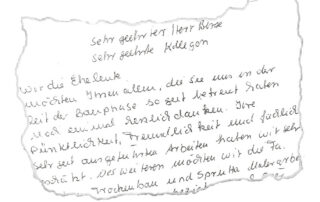 Sehr geehrter Herr Birse
Sehr geehrte Kollegen
Wir die Eheleute
möchten Ihnen allen, die sie uns in der
Zeit der Bauphase so gut betreut haten
noch ein mal herzlich danken. Ihre
Pünktlichkeit, Freundlichkeit und fachlich
sehr gut ausgeführten Arbeiten haben wir sehr
geschätzt. Des weiteren möchten wir die Fa.
Trockenbau und Malerarbe